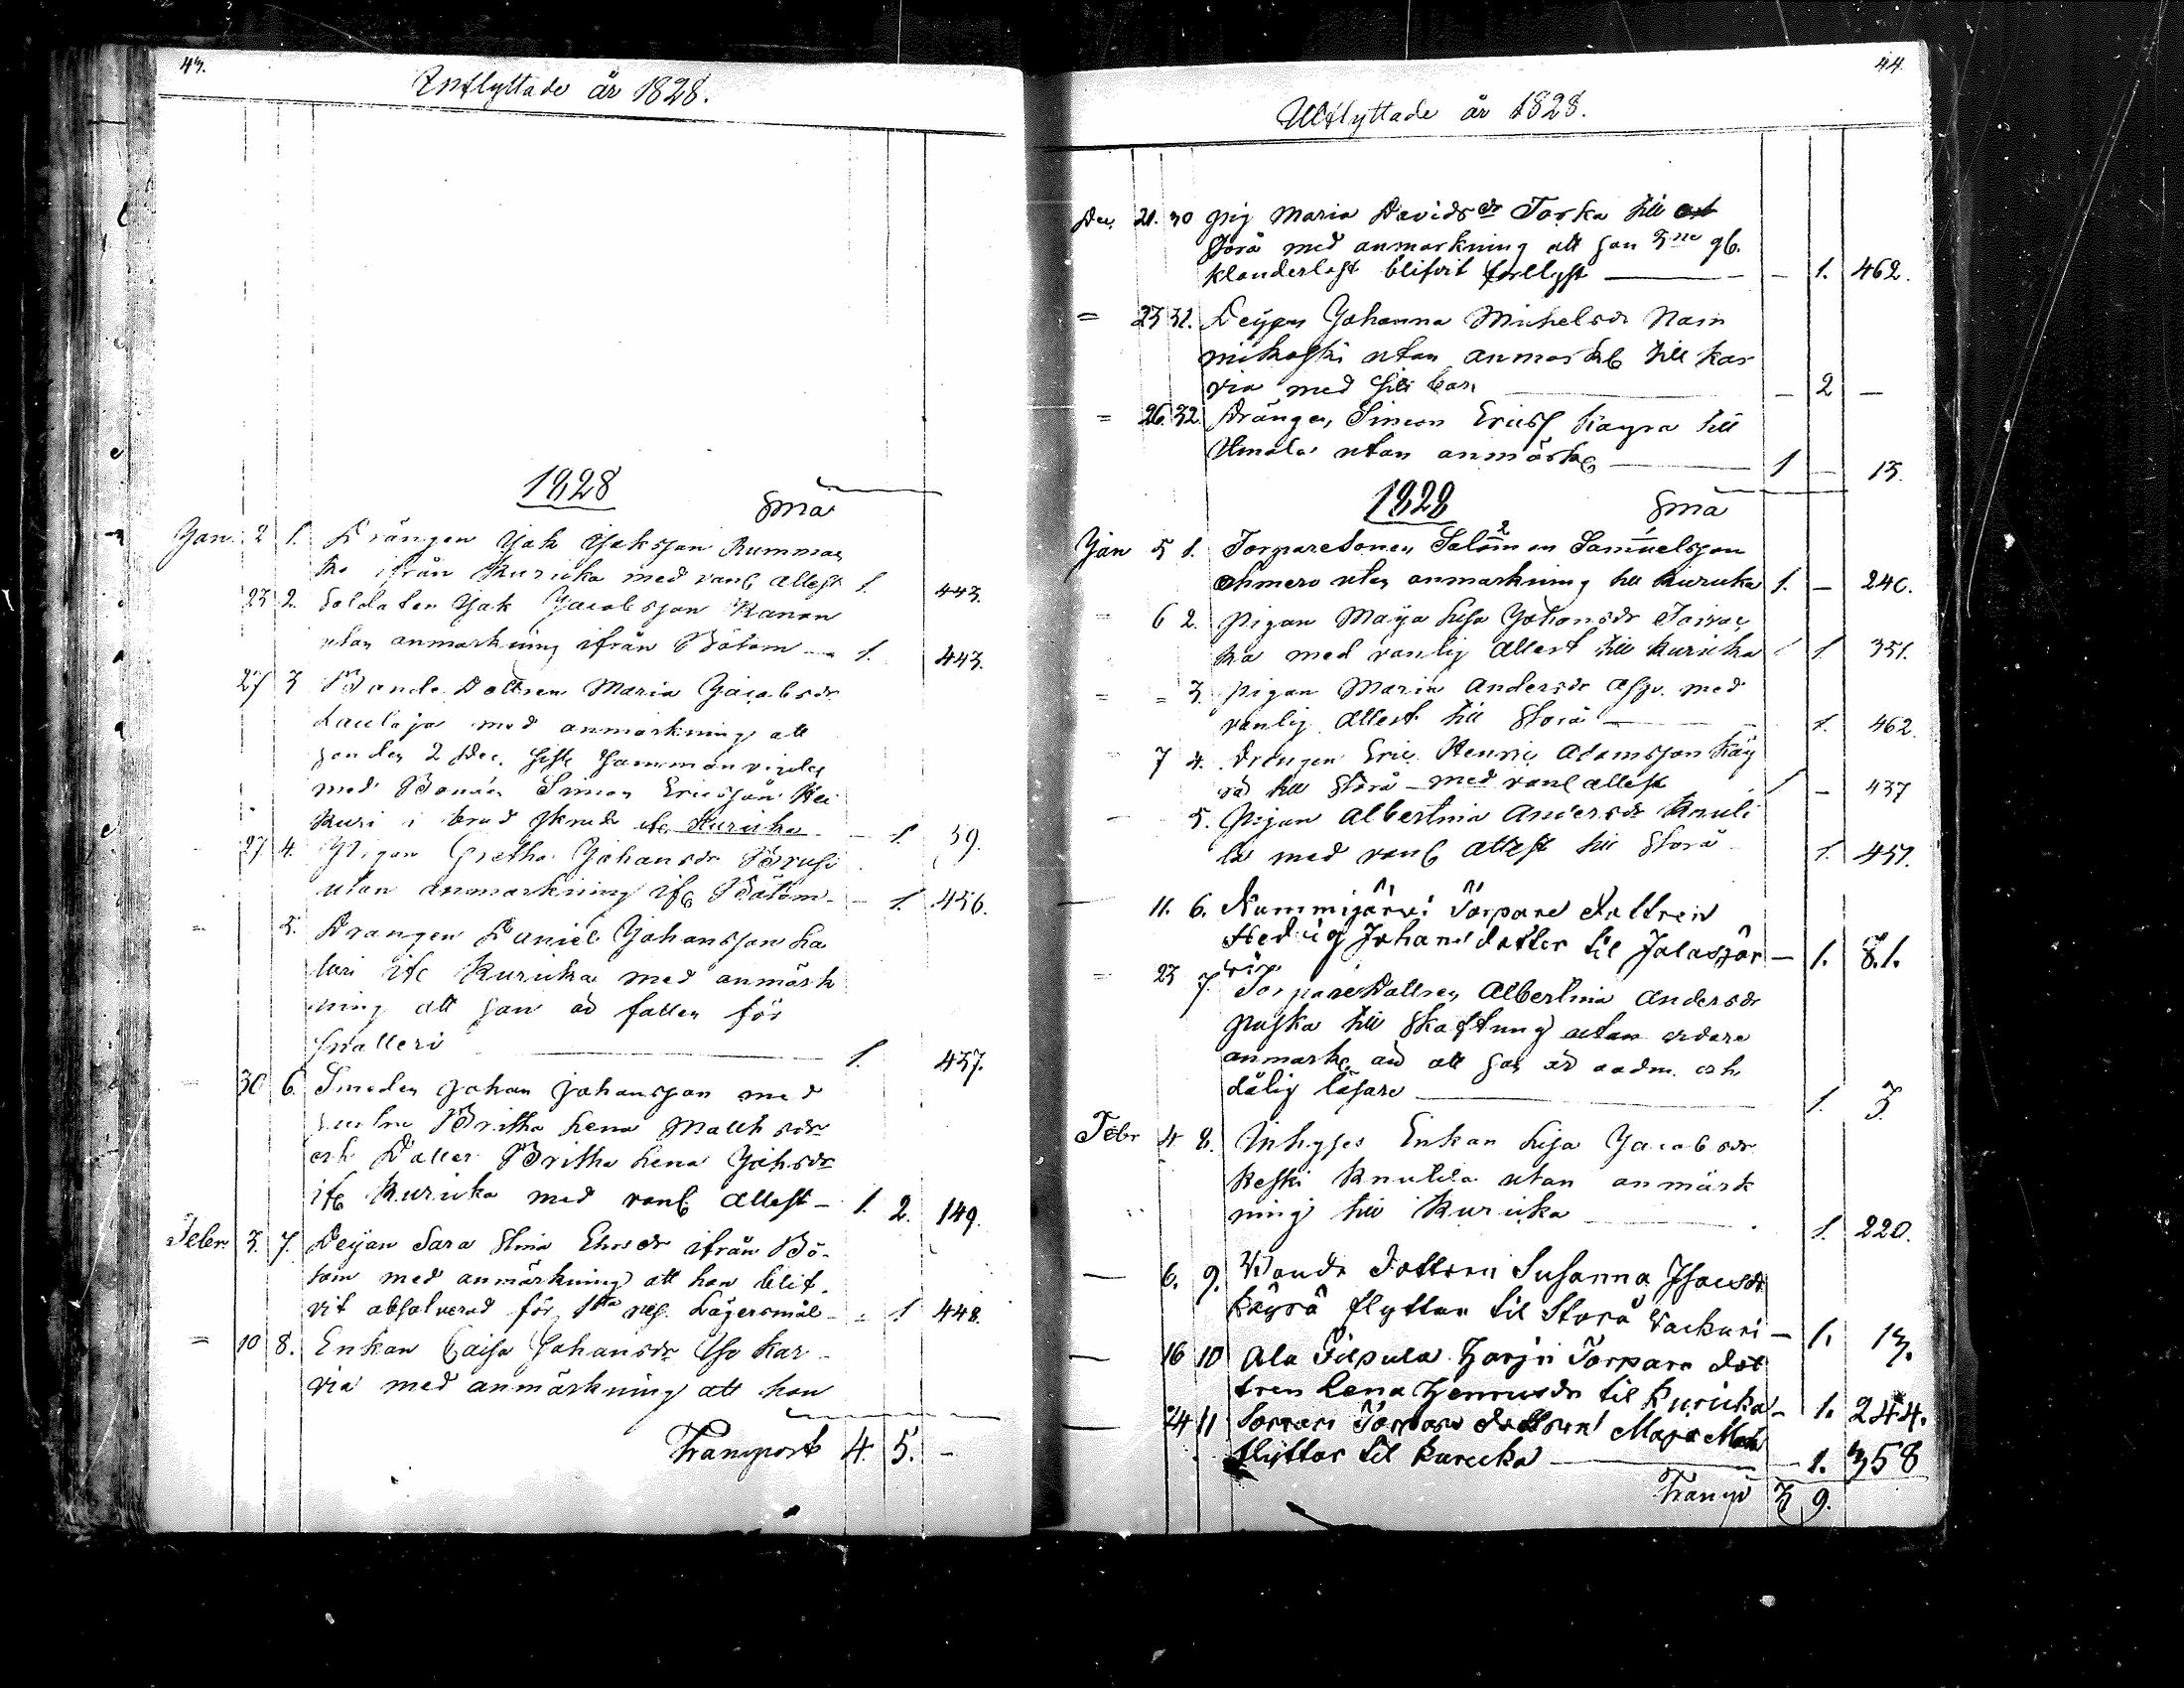 43.
Inflyttade år 1828.
1828
Små
Jan. 2 1. Drängen Jak Jaksson Rumman
ko ifrån Kuricka med vanl attest 1. 443.
23 2. Soldaten Jak Jacobsson Kanon
utan anmärkning ifrån Bötom - 1. 443.
27 3 Bonde Dottren Maria Jacobsdr
Laulaja med anmärkning att
hon den 2 Dec. sist Sammanvigdes
med Bonden Simon Ericsson Hei
kuri i brud skrud ifr Kuricka - 1. 39.
27. 4. Pigan Gretha Johansdr
utan anmärkning ifr Bötom - 1. 456.
= 5. Drängen Daniel Johansson La
luri ifr Kuricka med anmärk
ning att han är fallen för
fylleri 1. 437.
= 30 6 Smeden Johan Johansson med
hustru Britha Lena Matthsdr
och Dotter Britha Lena Johsdr
ifr Kuricka med vanl attest - 1. 2. 149.
Febr. 3. 7. Pejan Sara Stina Ehrsdr ifrån Bö-
tom med anmärkning att hon blif-
vit absolverad för 1sta Lägersmål - 1 448.
= 10 8. Enkan Caisa Johansdr ifr Kar-
via med anmärkning att hon
Transport 4. 5. -
44.
Utflyttade år 1828.
Dec. 21. 30 pig Maria Davidsdr Torka till
Storå med anmärkning att hon 3ne g.
klanderlöst blifvit förlyst - 1. 462.
= 23 31. Pejan Johanna Michelsdr Nam
mikoski utan anmärk till Kar
via med sitt barn - 2 -
= 26. 32. Drängen Simon Ericss Kayra till
Ilmola utan anmärk 1 - 13.
1828
Små
Jan 5 1. Torparesonen Salomon Samuelsson
utan anmärkning till Kuricka 1. - 240.
- 6 2. Pigan Maja Lisa Johansdr Taivas
ka med vanlig attest till Kuricka 1 351.
= = 3. Pigan Maria Andersdr med
vanlig attest till Storå - 1. 462.
- 7 4. Drängen Eric Henric Adamsson Käy
rä till Storå - med vanl attest 1 - 437
- 5. Pigan Albertina Andersdr Knuti
la med vanl attest till Storå 1. 451.
- 11. 6. Nummijärvi Torpare dottren
Hedvig Johans dotter til Jalasjär - 1. 81.
= 23 7. Torpare Dottren Albertina Andersdr
Puska till Skaftung utan vidare
anmärk än att hon är och
dålig läsare 1. 3.
Febr 4 8. Inhyses Enkan Lisa Jacobsdr
Keski Knutila utan anmärk
ning till Kuricka 1. 220.
- 6. 9. Bonde dottren Susanna Isacsdr
Käyrä flyttar til Storå - 1. 13.
- 16 10 Ala Filpula Harju Torpare dot
tren Lena Henricsdr til Kuricka - 1. 244.
- 24 11 Sorvari Torpare dottren Maja
flyttar til Kurecka - 1. 358
Transp 3 9.